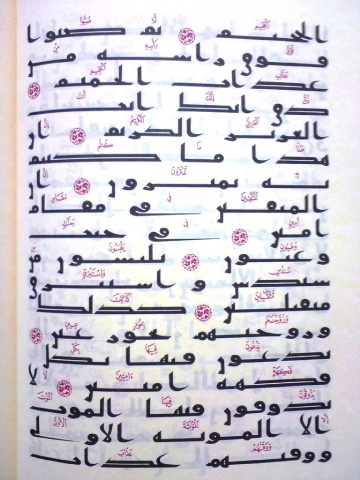 الجحيم ۝ ثم صبوا
فوق راسه من
عذاب الحميم ۝
ذق انك انت
العزيز الكريم ۝ ان
هذا ما كنتم
به تمترون ۝ ان
المتقين في مقام
امين ۝ في جنت
وعيون ۝ يلبسون من
سندس و استبرق
متقبلين ۝ كذلك
وزوجنهم بحور عين ۝
يدعون فيها بكل
فكهة امنين ۝ لا
يذوقون فيها الموت
الا الموتة الاولى
ووقهم عذاب